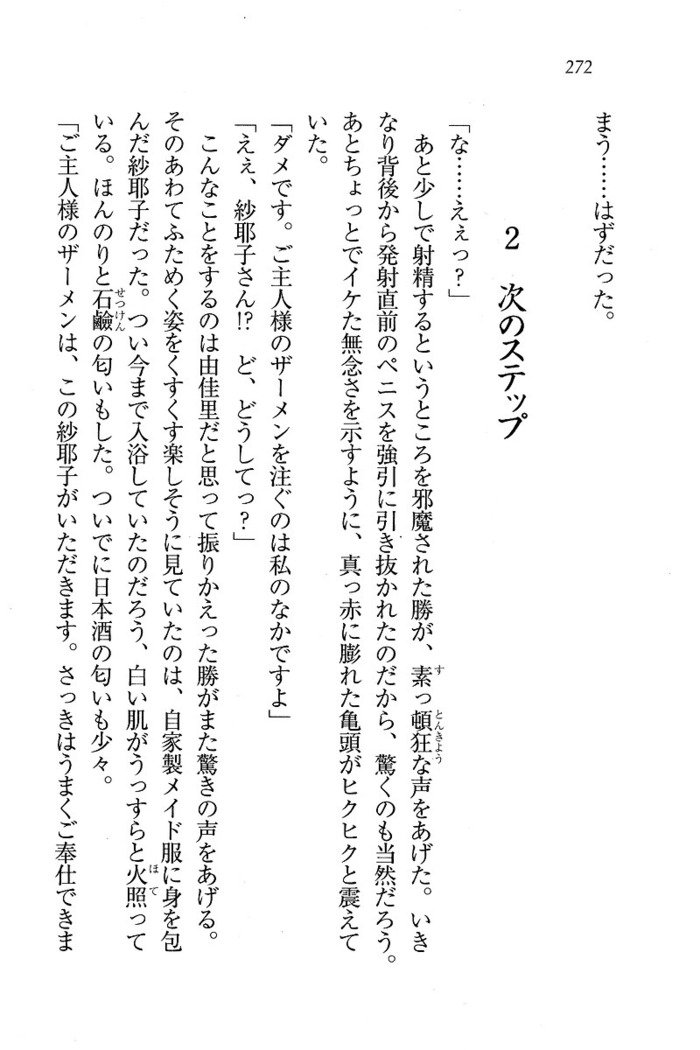 272
まう……はずだった。
2　次のステップ
「な……えぇっ？」
　あと少しで射精するというところを邪魔された勝が、素っ頓狂な声をあげた。いき
なり背後から発射直前のペニスを強引に引き抜かれたのだから、驚くのも当然だろう。
あとちょっとでイケた無念さを示すように、真っ赤に膨れた亀頭がヒクヒクと震えて
いた。
「ダメです。ご主人様のザーメンを注ぐのは私のなかですよ」
「えぇ、紗耶子さん!?　ど、どうしてっ？」
　こんなことをするのは由佳里だと思って振りかえった勝がまた驚きの声をあげる。
そのあわてふためく姿をくすくす楽しそうに見ていたのは、自家製メイド服に身を包
んだ紗耶子だった。つい今まで入浴していたのだろう、白い肌がうっすらと火照って
いる。ほんのりと石鹼の匂いもした。ついでに日本酒の匂いも少々。
「ご主人様のザーメンは、この紗耶子がいただきます。さっきはうまくご奉仕できま